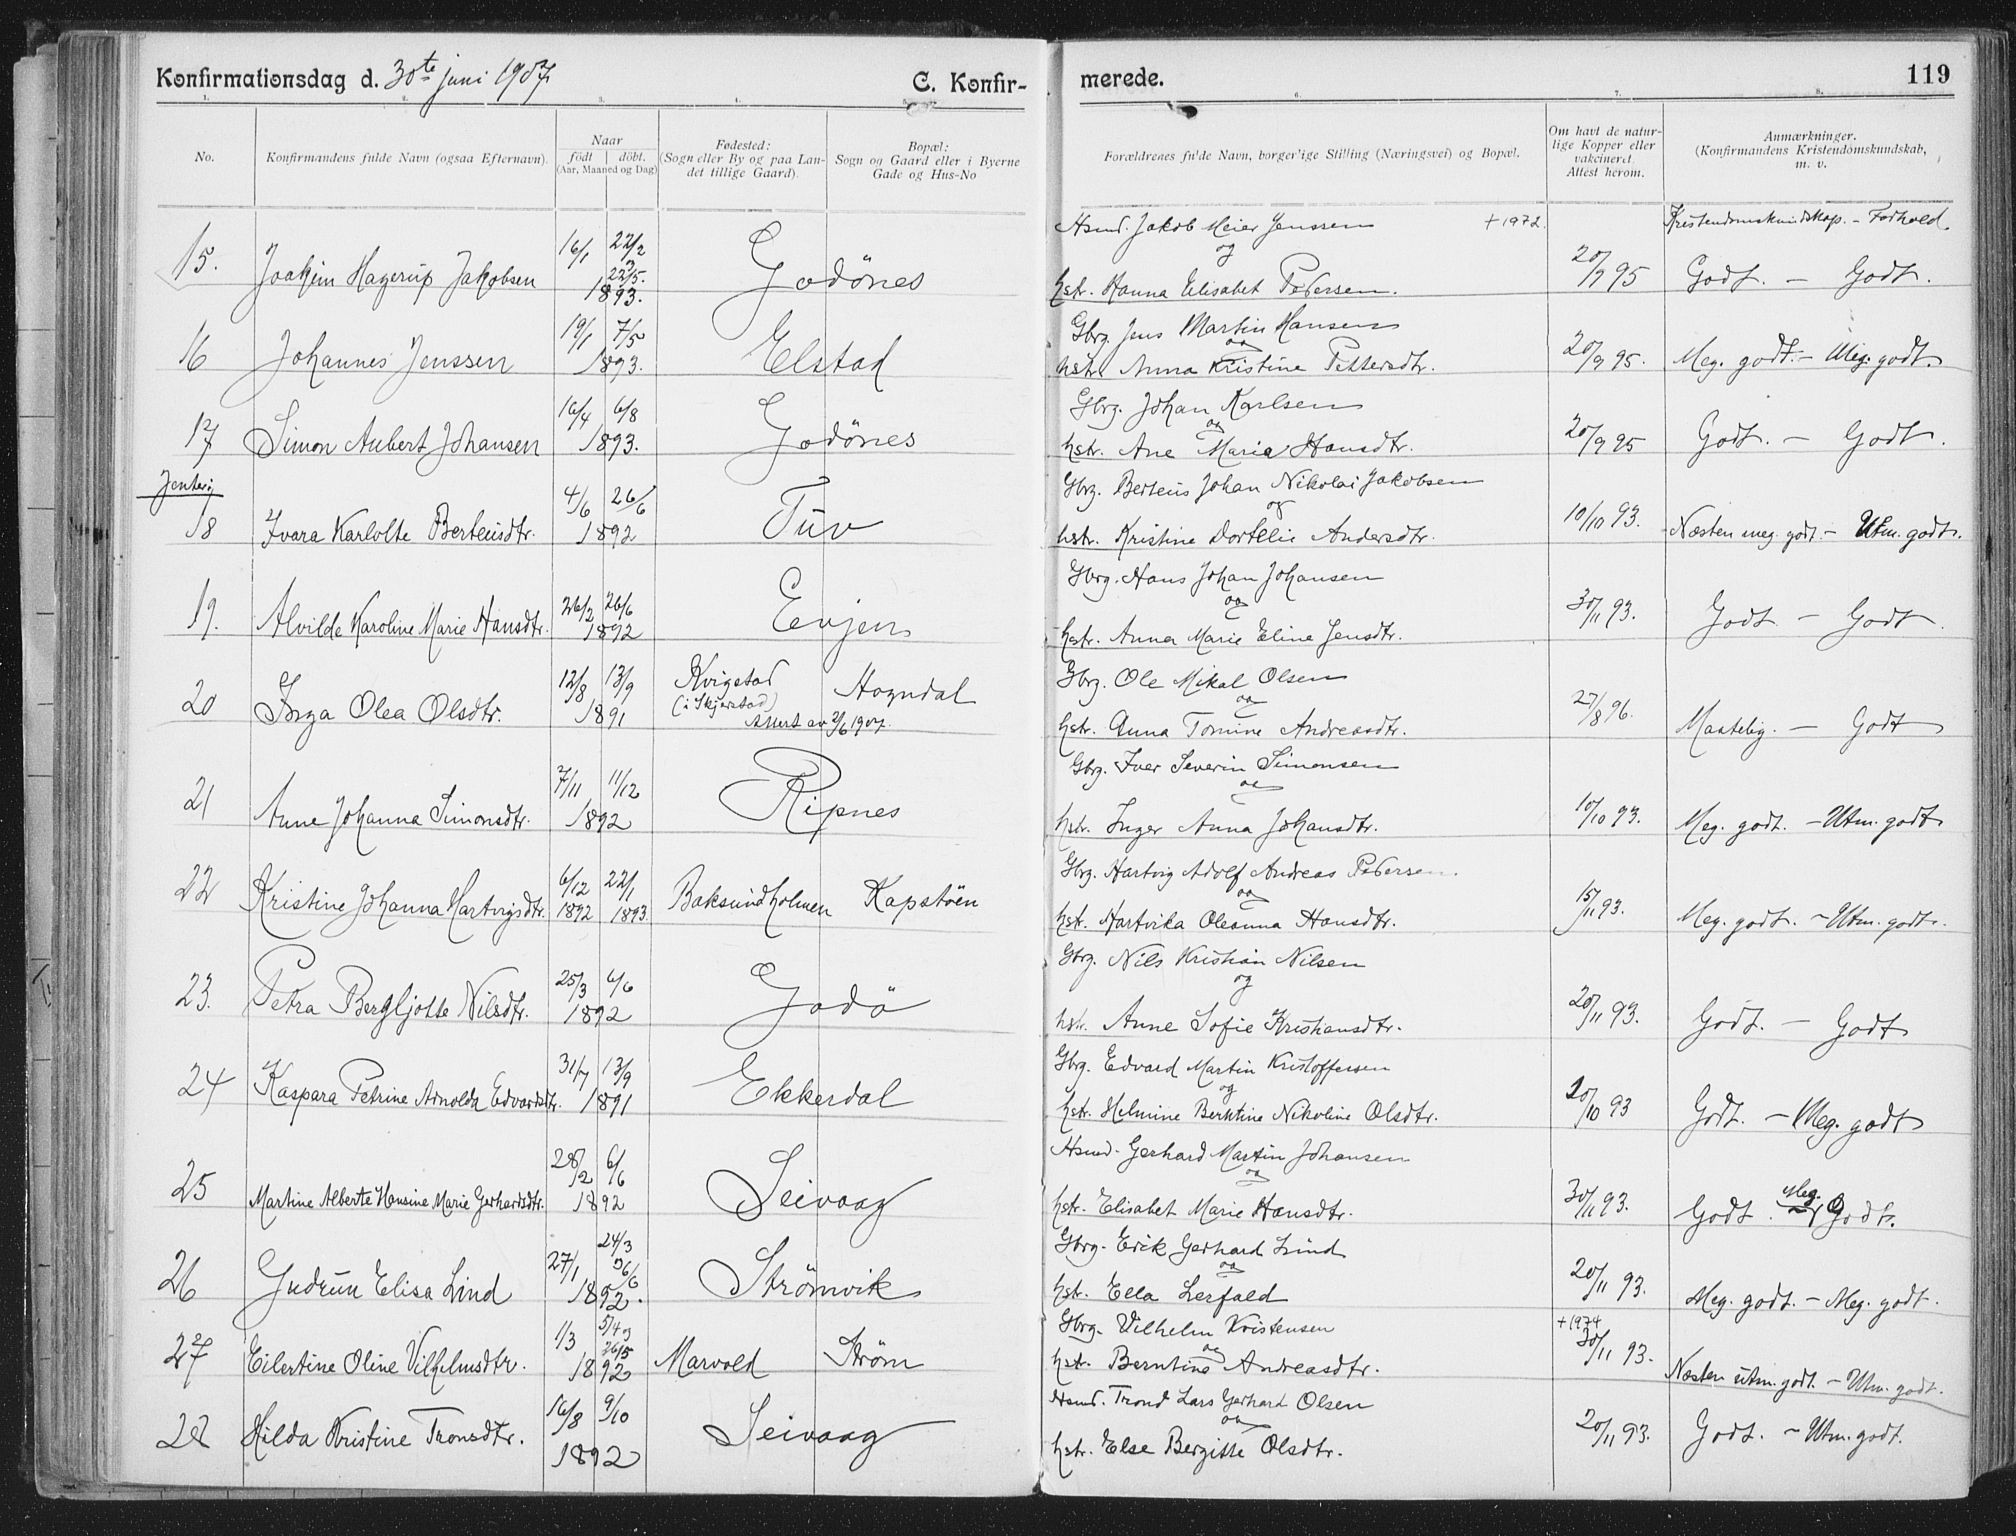 Konfirmationsdag d. 30te juni 1907. C. Konfir-
merede. 119
1. 2. 3. 4. 5. 6. 7. 8.
No.
Konfirmandens fulde Navn (ogsaa Efternavn).
Naar
født | döbt.
(Aar, Maaned og Dag)
Fødested:
(Sogn eller By og paa Lan-
det tillige Gaard).
Bopæl:
Sogn og Gaard eller i Byerne
Gade og Hus-No
Forældrenes fulde Navn, borgerlige Stilling (Næringsvei) og Bopæl.
Om havt de natur-
lige Kopper eller
vakcineret.
Attest herom.
Anmærkninger.
(Konfirmandens Kristendomskundskab,
m. v.
Kristendomskundskap. - Forhold.
15. Joakim Hagerup Jakobsen 16/1 22/2 22/5. 1893. Godönes
Hsmd. Jakob Meier Jenssen + 1972.
og
hstr. Hanna Elisabet Pedersen. 20/9 95 Godt. - Godt.
16 Johannes Jenssen 19/1 7/5 1893. Elstad
Gbrg. Jens Martin Hansen
og
hstr. Anna Kristine Pettersdtr. 20/9 95. Meg. godt. - Meg. godt.
17 Simon Aubert Johansen 16/4 6/8 1893. Godönes
Gbrg. Johan Karlsen
og
hstr. Ane Maria Hansdtr. 20/9 95 Godt. - Godt.
Jenter:
18 Ivara Karlotte Berteusdtr. 4/6 26/6 1892 Tuv
Gbrg. Berteus Johan Nikolai Jakobsen
og
hstr. Kristine Dortelie Andersdtr. 10/10 93. Næsten meg. godt. - Utm. godt.
19. Alvilde Karoline Marie Hansdtr. 26/2 26/6 1892 Evjen
Gbrg. Hans Johan Johansen
og
hstr. Anna Marie Eline Jensdtr. 30/11 93. Godt - Godt.
20 Inga Olea Olsdtr. 12/8 13/9 1891 Kvigstad Hogndal
(i Skjerstad)
Attest av 2/6 1907.
Gbrg. Ole Mikal Olsen
og
hstr. Anna Tomine Andreasdtr. 27/8 96. Maatelig. - Godt
21 Anne Johanna Simonsdtr. 7/11 11/12 1892 Ripnes
Gbrg. Iver Severin Simonsen
og
hstr. Inger Anna Johansdtr. 10/10 93. Meg. godt. - Utm. godt
22 Kristine Johanna Hartvigsdtr. 6/12 1892 22/1 1893. Baksundholmen Kapstöen
Gbrg. Hartvig Adolf Andreas Pedersen.
og
hstr. Hartvika Oleanna Hansdtr. 15/11 93. Meg. godt. - Utm. godt.
23. Petra Bergljotte Nilsdtr. 25/3 6/6 1892 Godö
Gbrg. Nils Kristian Nilsen
og
hstr. Anne Sofie Kristiansdtr. 20/11 93. Godt. - Godt
24 Kaspara Petrine Arnolda Edvardsdtr. 31/7 13/9 1891 Ekkerdal
Gbrg. Edvard Martin Kristoffersen
og
hstr. Helmine Berntine Nikoline Olsdtr. 20/10 93 Godt. - Meg. godt
25 Martine Alberte Hansine Marie Gerhardsdtr. 28/2 6/6 1892 Seivaag
Hsmd. Gerhard Martin Johansen
og
hstr. Elisabet Marie Hansdtr. 30/11 93. Godt. - Meg. Godt.
26 Gudrun Elisa Lind 27/1 24/3 26/6 1892. Strömvik
Gbrg. Erik Gerhard Lind
og
hstr. Ella Lerfald 20/11 93. Meg. godt. - Meg. godt.
27 Eilertine Oline Vilhelmsdtr. 1/3 5/4 26/5 1892 Marvold Ström
Gbrg. Vilhelm Kristensen + 1974
og
hstr. Berntine Andreasdtr. 30/11 93. Næsten utm. godt. - Utm. godt.
28 Hilda Kristine Tronsdtr. 16/8 9/10 1892 Seivaag
Hsmd. Trond Lars Gerhard Olsen
og
hstr. Else Bergitte Olsdtr. 20/11 93. Godt. - Utm. godt.